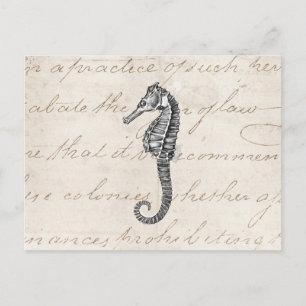 n a practice of such her
abate the of law
re that it commen
se colonies whether of
nances prohibiting